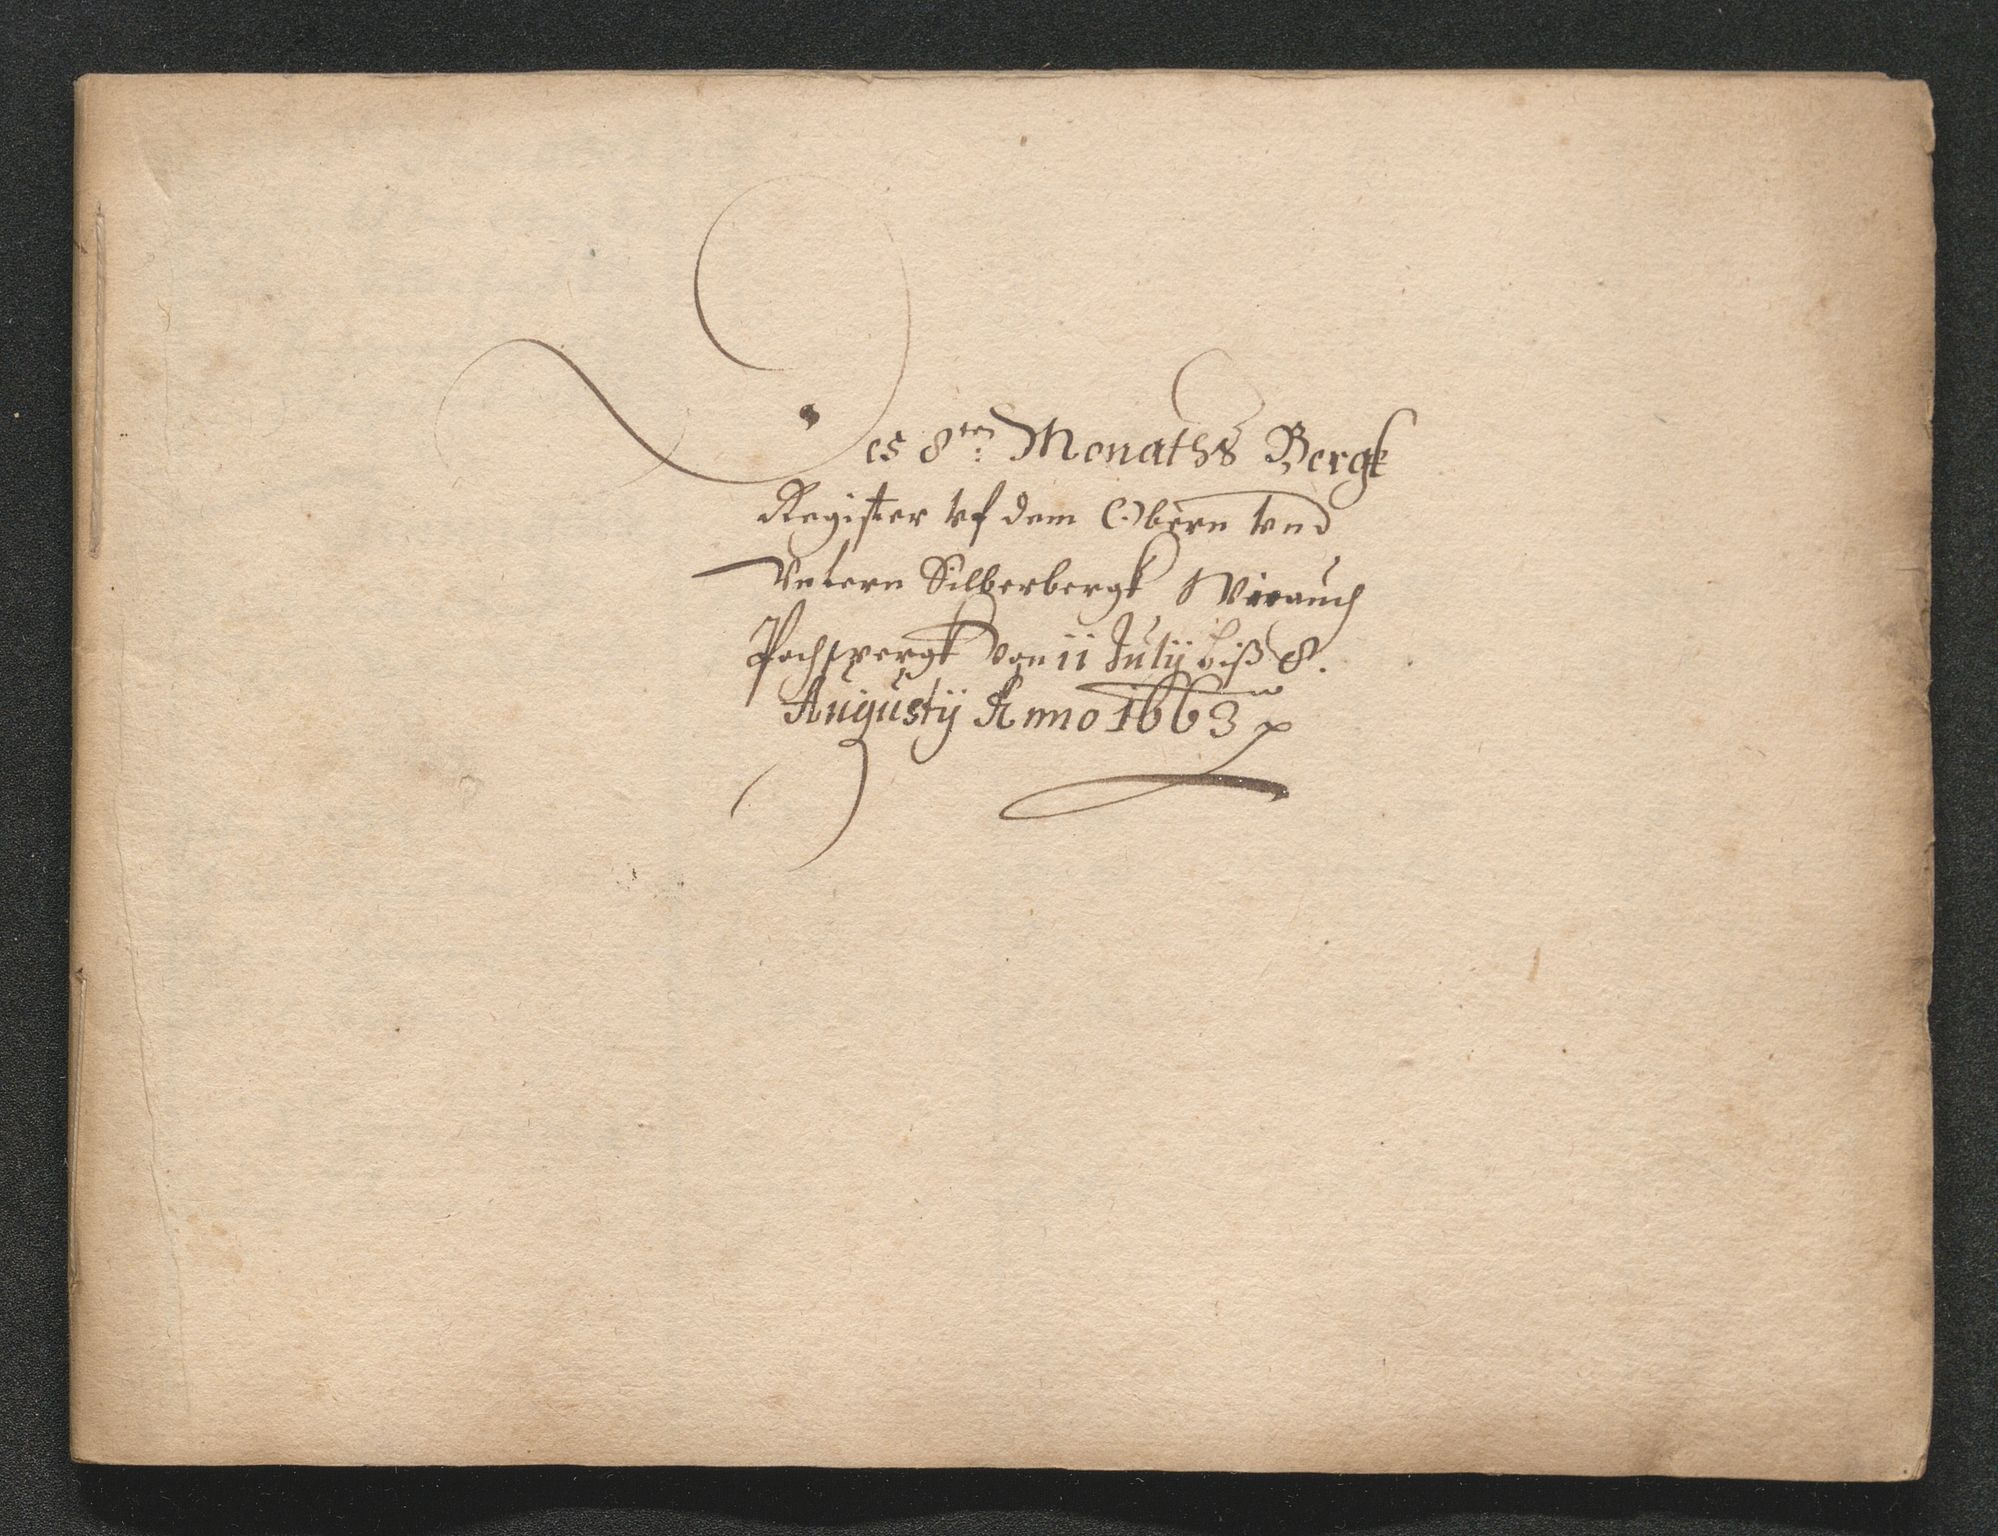 Des 8ten: Monaths Bergk
Register vf dem Obern vnd
Vntern Silberbergk Wieauch
Pochwergk Von 11 Julÿ biß 8.
Augustÿ Anno 1663